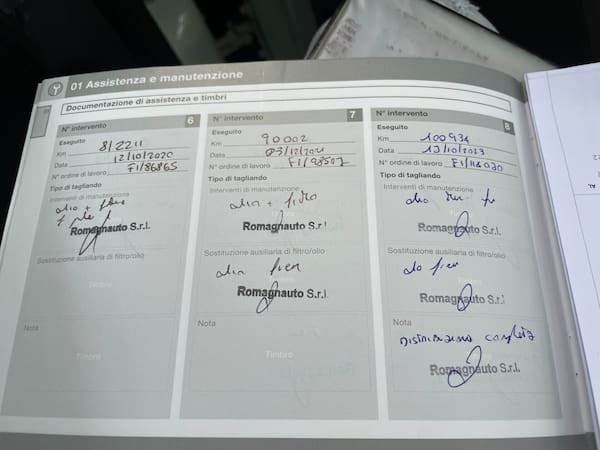 01 Assistenza e manutenzione
Documentazione di assistenza e timbri
N° intervento 6
Eseguito
Km 81221
Data 12/10/2020
N° ordine di lavoro F1/86865
Tipo di tagliando
Interventi di manutenzione
olio + filtro
Romagnauto S.r.l.
Sostituzione ausiliaria di filtro/olio
Timbro
Nota
Timbro
N° intervento 7
Eseguito
Km 90002
Data 03/12/2021
N° ordine di lavoro F1/98507
Tipo di tagliando
Interventi di manutenzione
olio + filtro
Romagnauto S.r.l.
Sostituzione ausiliaria di filtro/olio
olio freni
Romagnauto S.r.l.
Nota
Timbro
N° intervento 8
Eseguito
Km 100934
Data 13/10/2023
N° ordine di lavoro F1/116030
Tipo di tagliando
Interventi di manutenzione
olio
Romagnauto S.r.l.
Sostituzione ausiliaria di filtro/olio
olio freni
Romagnauto S.r.l.
Nota
Distribuzione completa
Romagnauto S.r.l.
AL